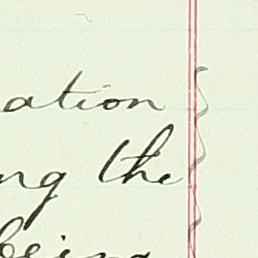 ation
ng the
being